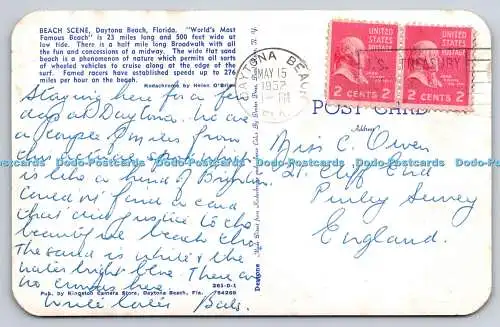 BEACH SCENE, Daytona Beach, Florida. "World's Most
Famous Beach" is 23 miles long and 500 feet wide at
low tide. There is a half mile long Broadwalk with all
the fun and concessions of a midway. The wide flat sand
beach is a phenomenon of nature which permits all sorts
of wheeled vehicles to cruise along at the edge of the
surf. Famed racers have established speeds up to 276
miles per hour on the beach.
Kodachrome by Helen O'Brien
Staying here for a few
days at Daytona. We are
a couple miles from
this
is like a kind of Brighton
could not find a card
that does justice to the
beautiful beach
The sand is white & the
water bright blue. There are
no here
Write later Babs.
Pub. by Kingston Camera Store, Daytona Beach, Fla.
261-D-1
54269
Dextone
DAYTONA BEACH
MAY 15
1952
PM
FLA.
U.S. TREASURY
2 CENTS 2
2 CENTS 2
POST CARD
Address
Miss C. Owen
21. Cliff End
Purley Surrey
England.
www.Judo-Postcards.com Judo-Postcards www.Judo-Postcards.com